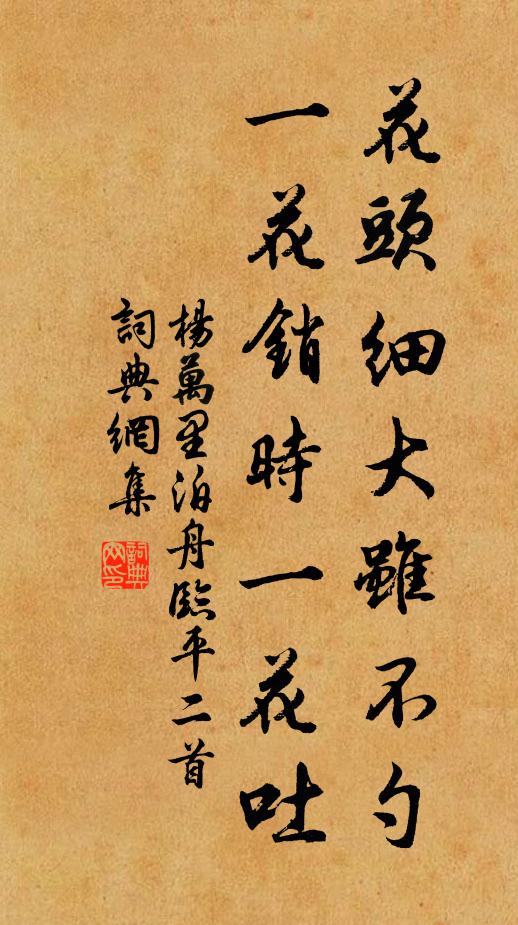 花頭細大雖不勺
一花銷時一花吐
楊萬里泊舟臨平二首
詞典網集
詞典网印